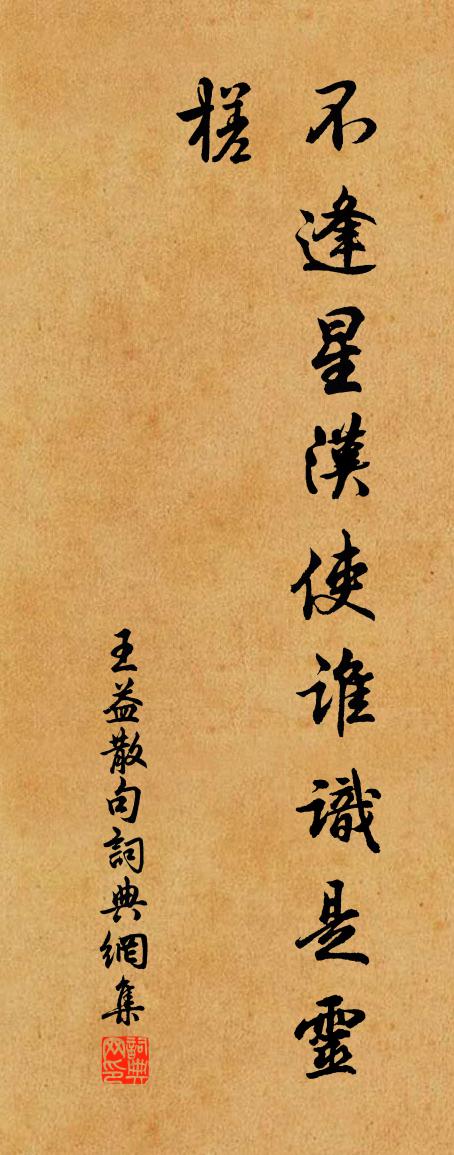 不逢星漢使誰識是靈
槎
王益散句詞典網集
詞典
网印